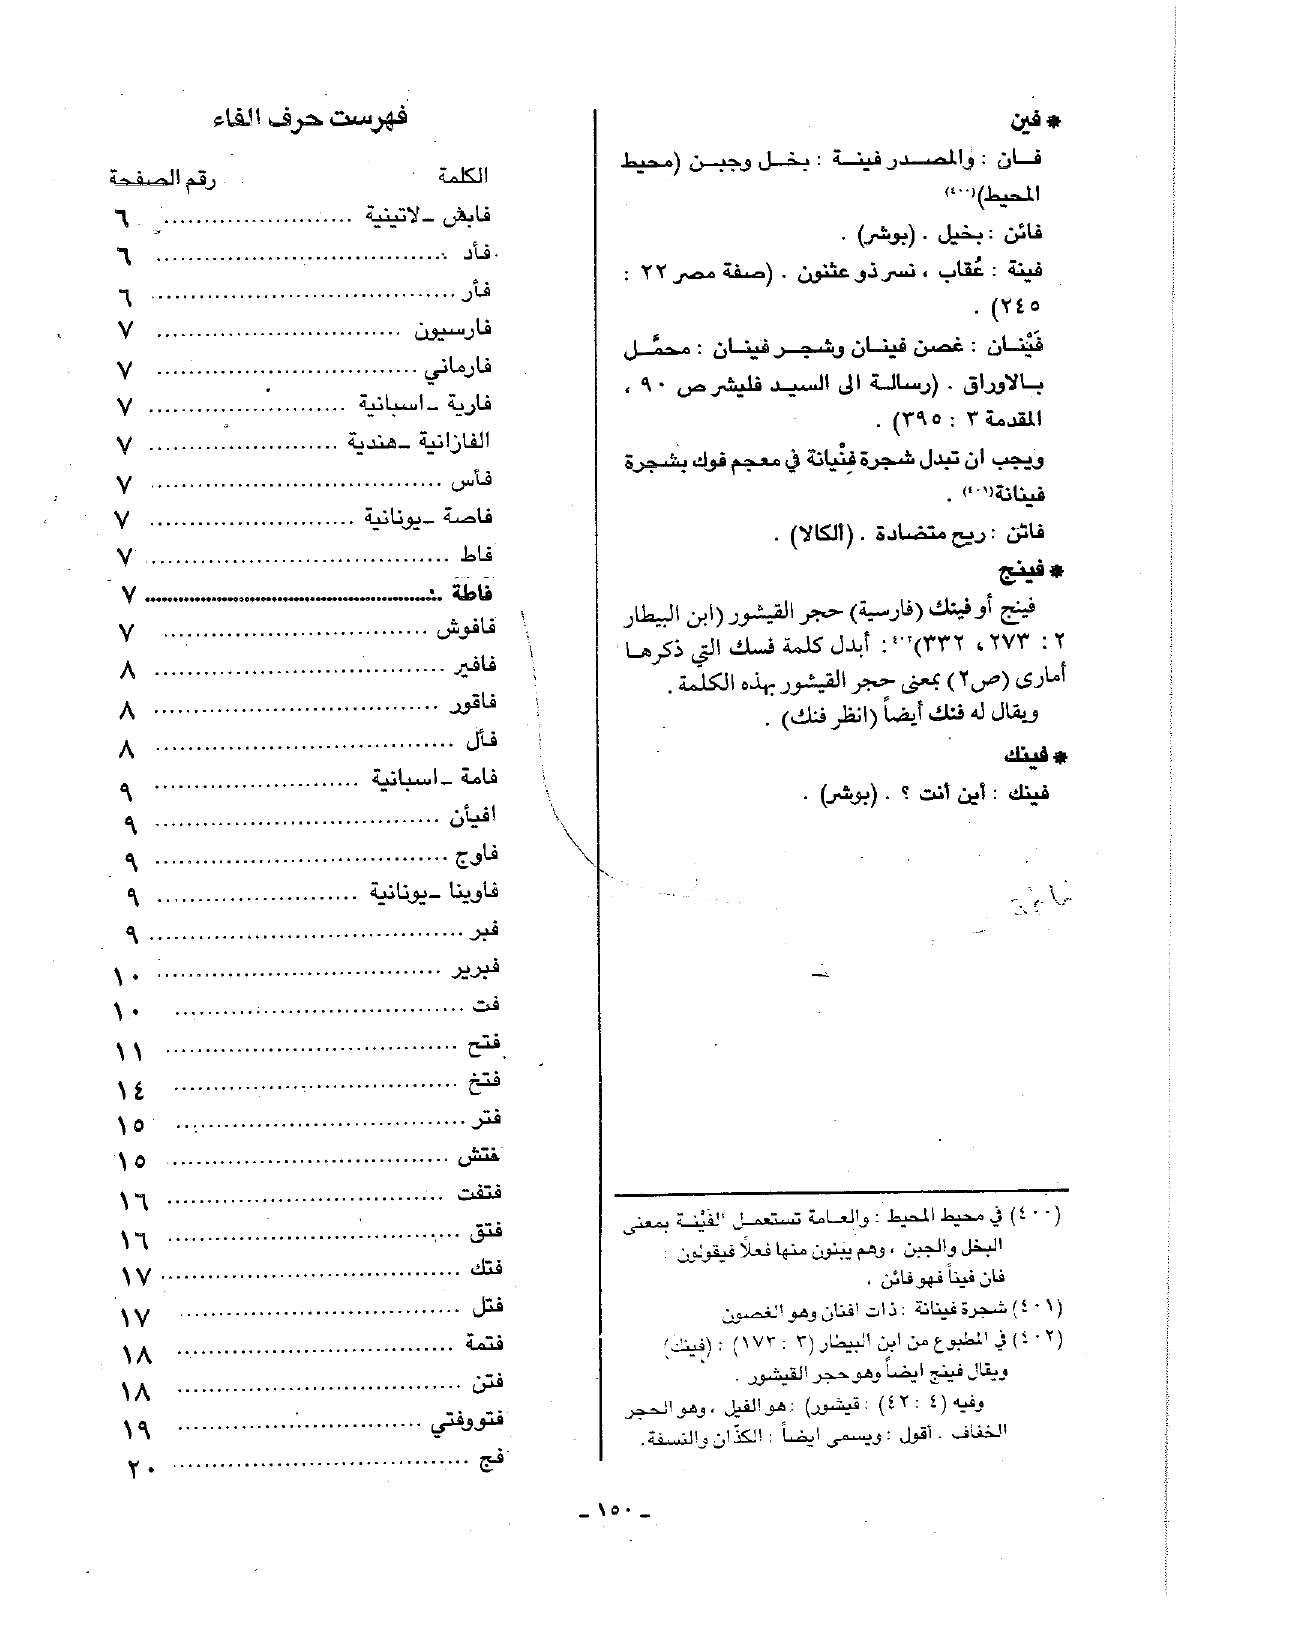 * فين
فان : والمصدر فينة : بخل وجبن (محيط
المحيط)(٤٠٠)
فائن : بخيل . (بوشر) .
فينة : عُقاب ، نسر ذو عثنون . (صفة مصر ٢٢ :
٢٤٥) .
فَيْنان : غصن فينان وشجر فينان : محمَّل
بالاوراق . (رسالة الى السيد فليشر ص ٩٠ ،
المقدمة ٣ : ٣٩٥) .
ويجب ان تبدل شجرة فنْيانة في معجم فوك بشجرة
فينانة(٤٠١) .
فائن : ريح متضادة . (الكالا) .
* فينج
فينج أو فينك (فارسية) حجر القيشور (ابن البيطار
٢ : ٢٧٣ ، ٣٣٢)٤٠٢: أبدل كلمة فسك التي ذكرها
أمارى (ص٢) بمعنى حجر القيشور بهذه الكلمة .
ويقال له فنك أيضاً (انظر فنك) .
* فينك
فينك : أين أنت ؟ . (بوشر) .
(٤٠٠) في محيط المحيط : والعامة تستعمل الفَيْنة بمعنى
البخل والجبن ، وهم يبنون منها فعلاً فيقولون :
فان فيناً فهو فائن .
(٤٠١) شجرة فينانة : ذات افنان وهو الغصون
(٤٠٢) في المطبوع من ابن البيطار (٣ : ١٧٣) : (فينك)
ويقال فينج ايضاً وهو حجر القيشور .
وفيه (٤ : ٤٢) : قيشور) : هو الفيل ، وهو الحجر
الخفاف . أقول : ويسمى ايضاً : الكذّان والنسفة .
فهرست حرف الفاء
الكلمة رقم الصفحة
فابش ـ لاتينية .................... ٦
فأد .................... ٦
فأر .................... ٦
فارسيون .................... ٧
فارماني .................... ٧
فارية ـ اسبانية .................... ٧
الفازانية ـ هندية .................... ٧
فأس .................... ٧
فاصة ـ يونانية .................... ٧
فاط .................... ٧
فاطة .................... ٧
فافوش .................... ٧
فافير .................... ٨
فاقور .................... ٨
فأل .................... ٨
فامة ـ اسبانية .................... ٩
افيأن .................... ٩
فاوج .................... ٩
فاوينا ـ يونانية .................... ٩
فبر .................... ٩
فبرير .................... ١٠
فت .................... ١٠
فتح .................... ١١
فتخ .................... ١٤
فتر .................... ١٥
فتش .................... ١٥
فتفت .................... ١٦
فتق .................... ١٦
فتك .................... ١٧
فتل .................... ١٧
فتمة .................... ١٨
فتن .................... ١٨
فتووفتي .................... ١٩
فج .................... ٢٠
ـ ١٥٠ ـ